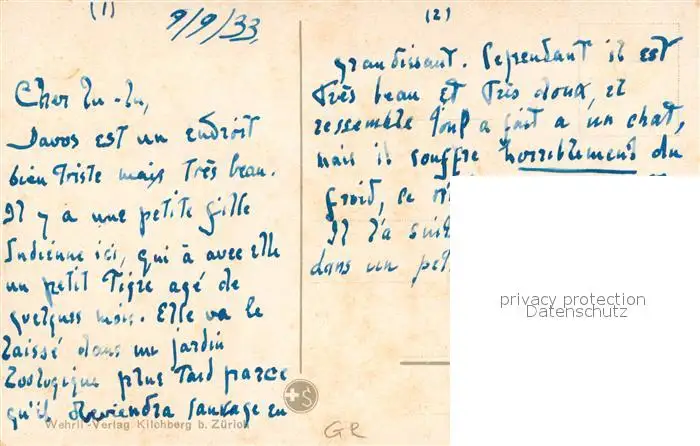 (1)
9/9/33.
Cher Lu-Lu,
Davos est un endroit
bien triste mais très beau.
Il y a une petite fille
Indienne ici, qui à avec elle
un petit Tigre agé de
quelques mois. Elle va le
laissé dans un jardin
Zoologique plus tard parce
qu'il deviendra sauvage en
Wehrli-Verlag Kilchberg b. Zürich
(2)
grandissant. Cependant il est
très beau et très doux, et
ressemble tout a fait a un chat,
mais il souffre horriblement du
froid, ce
Il l'a
dans un
privacy protection
Datenschutz
S
GR